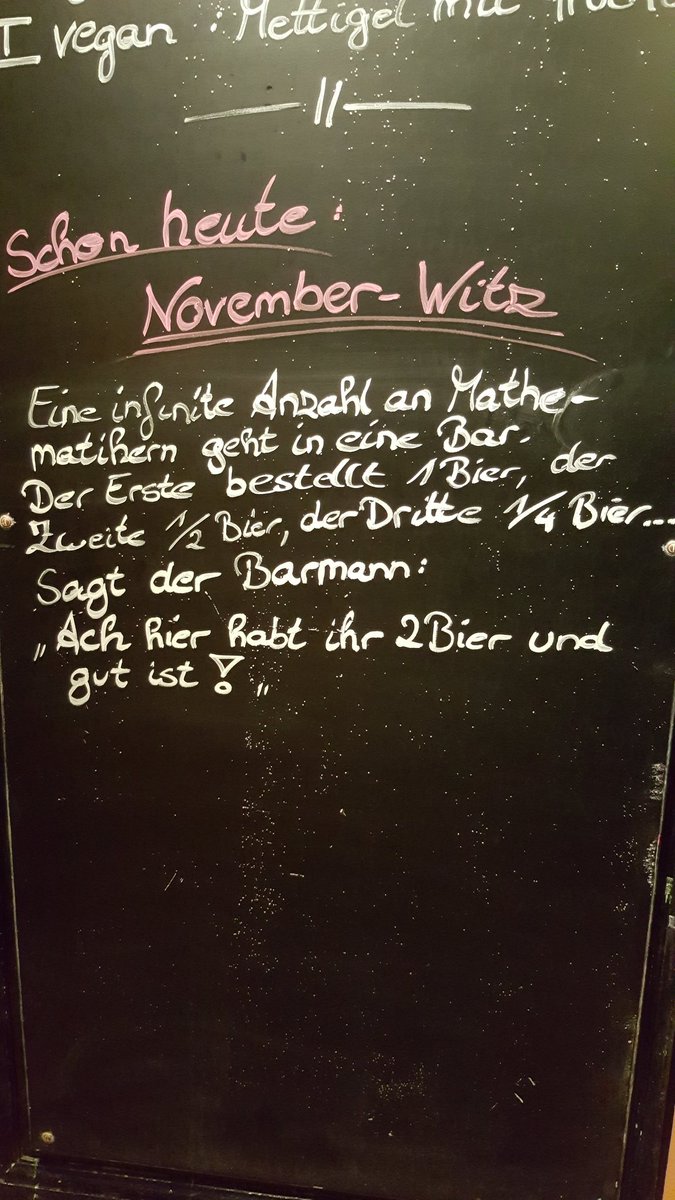 I vegan : Mettigel mit
— || —
Schon heute :
November-Witz
Eine infinite Anzahl an Mathe-
matikern geht in eine Bar.
Der Erste bestellt 1 Bier, der
Zweite 1/2 Bier, der Dritte 1/4 Bier...
Sagt der Barmann :
„Ach hier habt ihr 2 Bier und
gut ist ! „